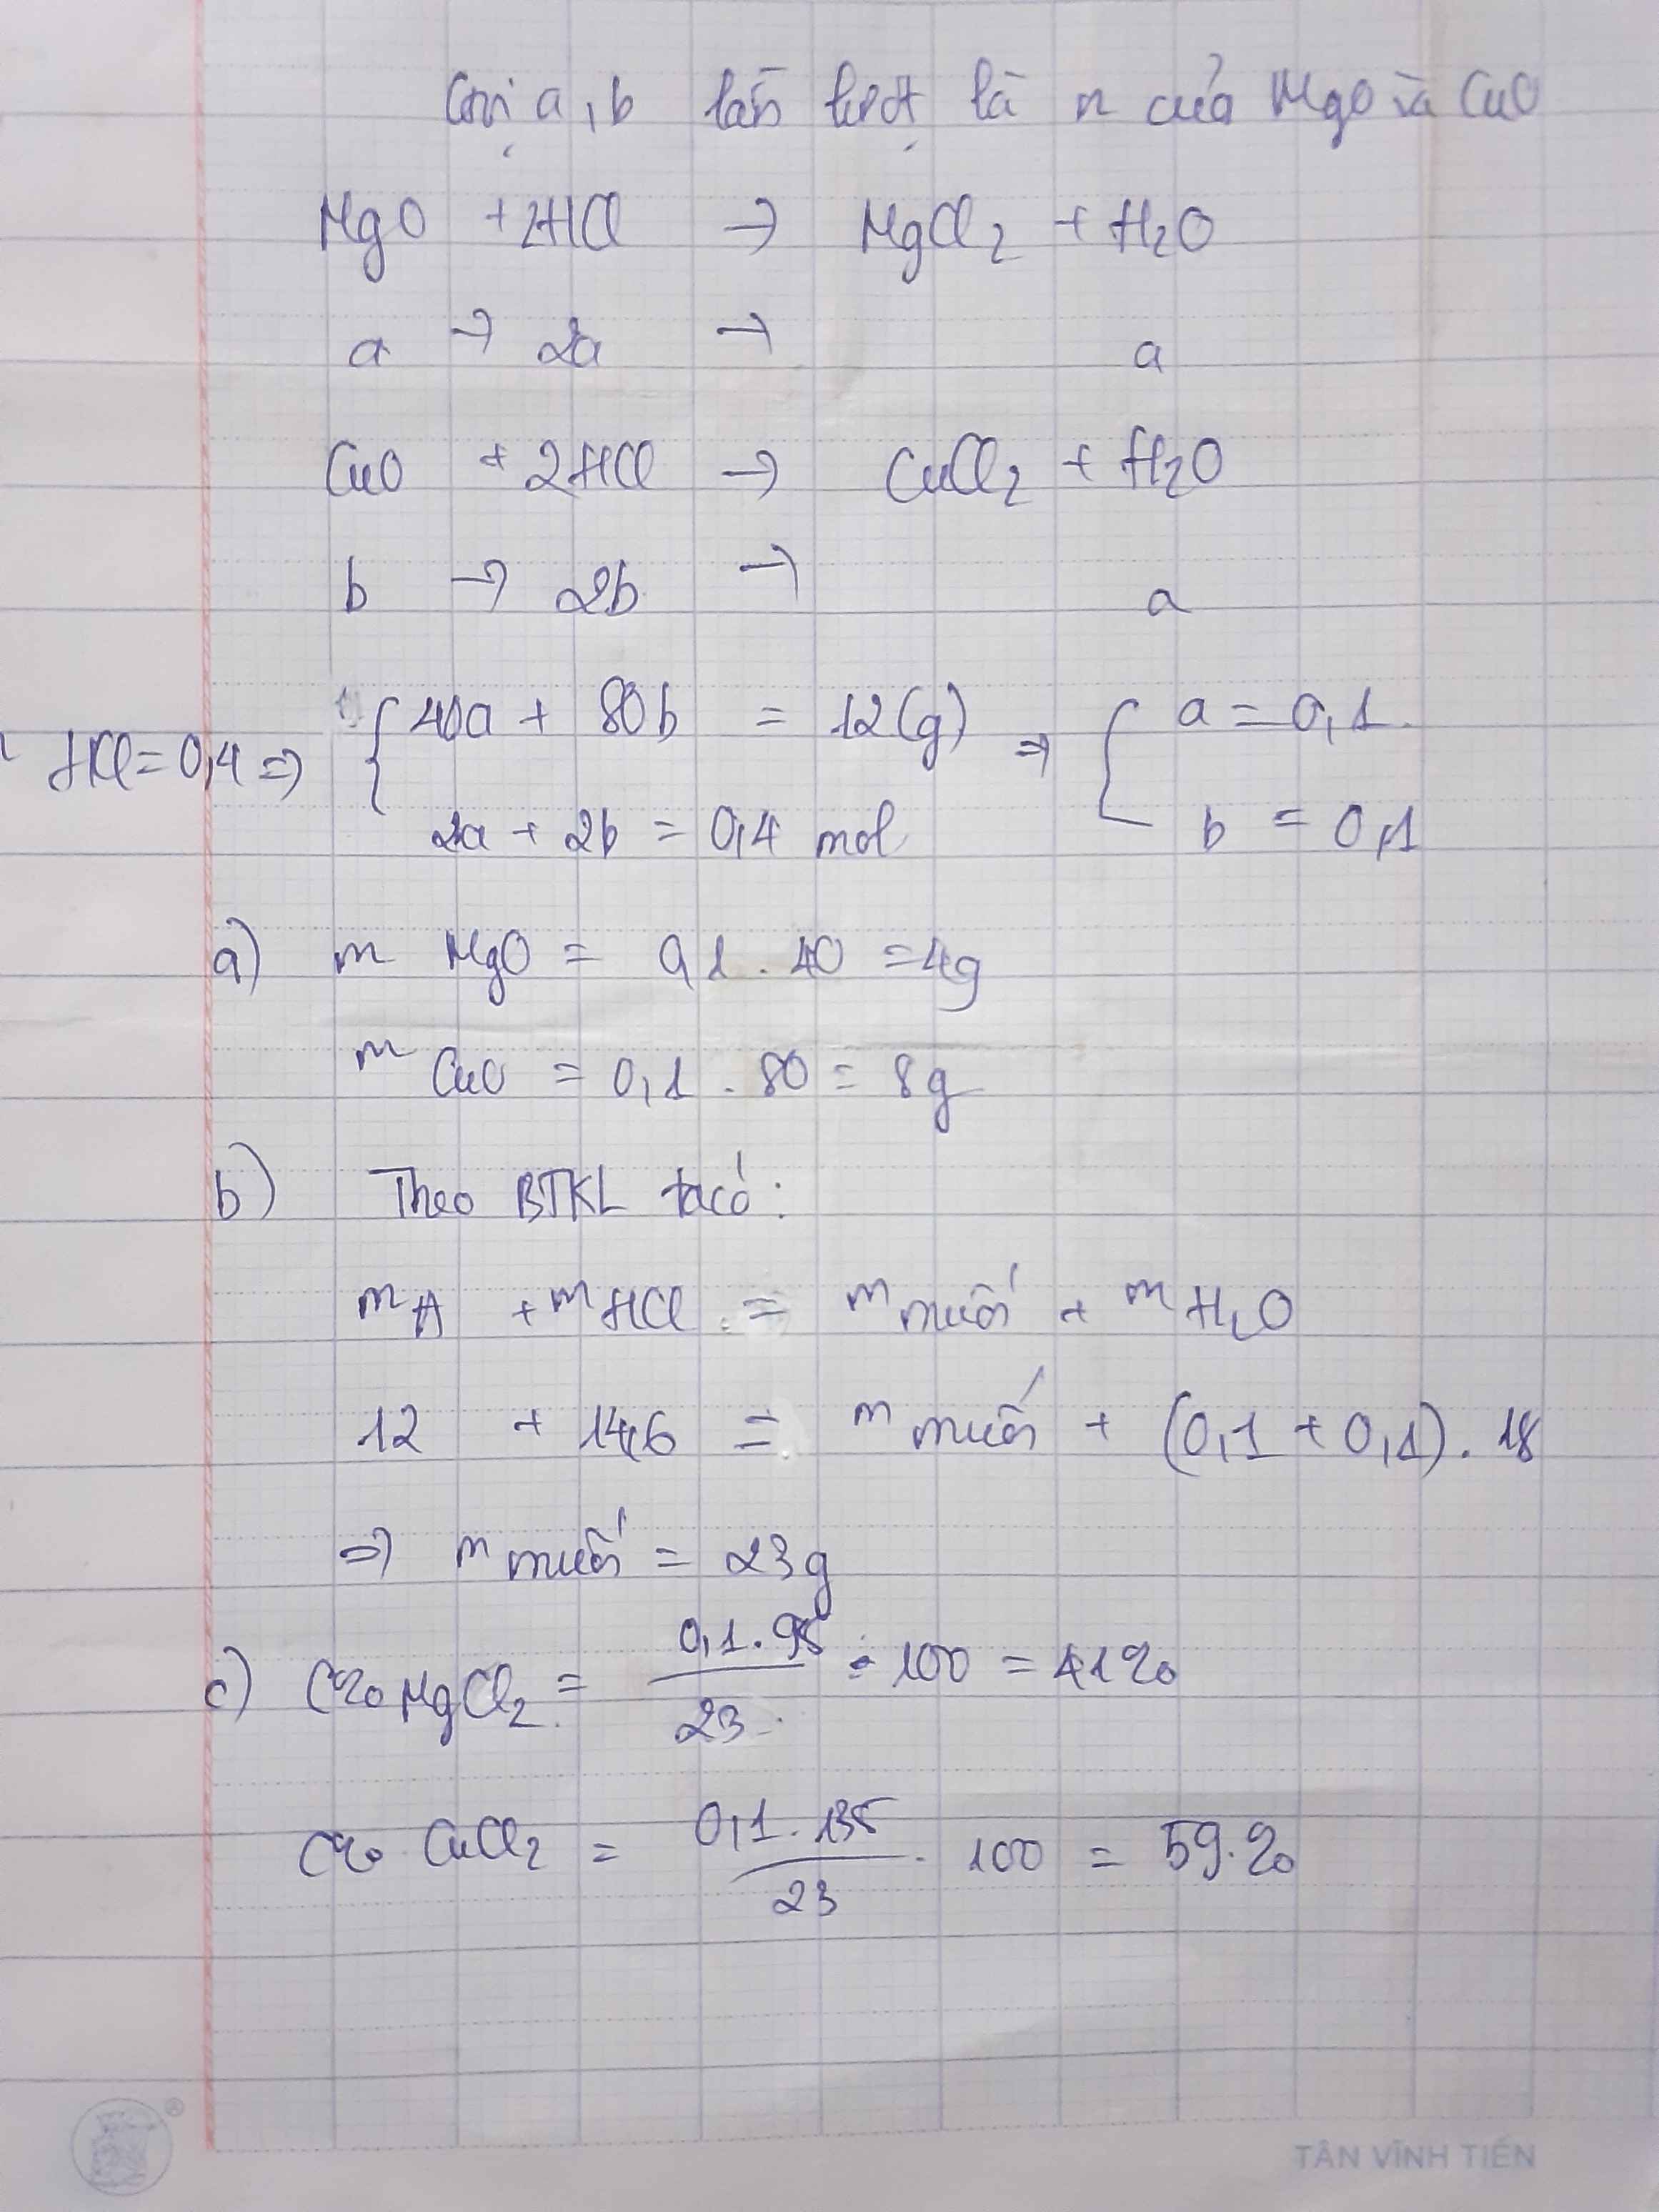 Gọi a, b lần lượt là n của MgO và CuO
MgO + 2HCl → MgCl₂ + H₂O
a → 2a → a
CuO + 2HCl → CuCl₂ + H₂O
b → 2b → a
HCl = 0,4 ⇒ { 40a + 80b = 12(g) ⇒ { a = 0,1
2a + 2b = 0,4 mol b = 0,1
a) m MgO = 0,1 . 40 = 4g
m CuO = 0,1 . 80 = 8g
b) Theo BTKL ta có:
mA + mHCl = m muối + mH₂O
12 + 14,6 = m muối + (0,1 + 0,1) . 18
⇒ m muối = 23g
c) C% MgCl₂ = 0,1 . 95 / 23 . 100 = 41%
C% CuCl₂ = 0,1 . 135 / 23 . 100 = 59%
®
TÂN VĨNH TIẾN